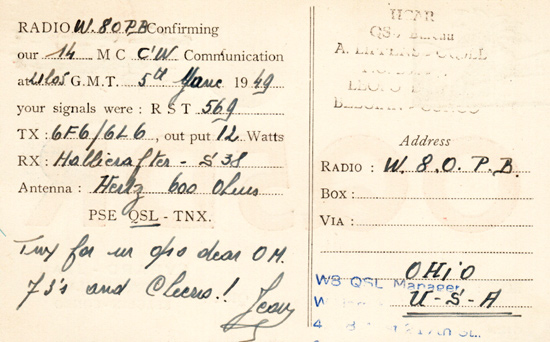 RADIO W.8OPB Confirming
our 14 M C CW Communication
at G.M.T. 5th 1949
your signals were : R S T 569
TX : 6F6/6L6, out put 12 Watts
RX : Hallicrafter - S 38
Antenna : Hertz 600 Ohms
PSE QSL - TNX.
for ur qso dear OM.
73's and Cheerio.!
A. 
Address
RADIO : W.8.O.P.B.
BOX :
VIA :
OHiO
W8 QSL Manager
U-S-A